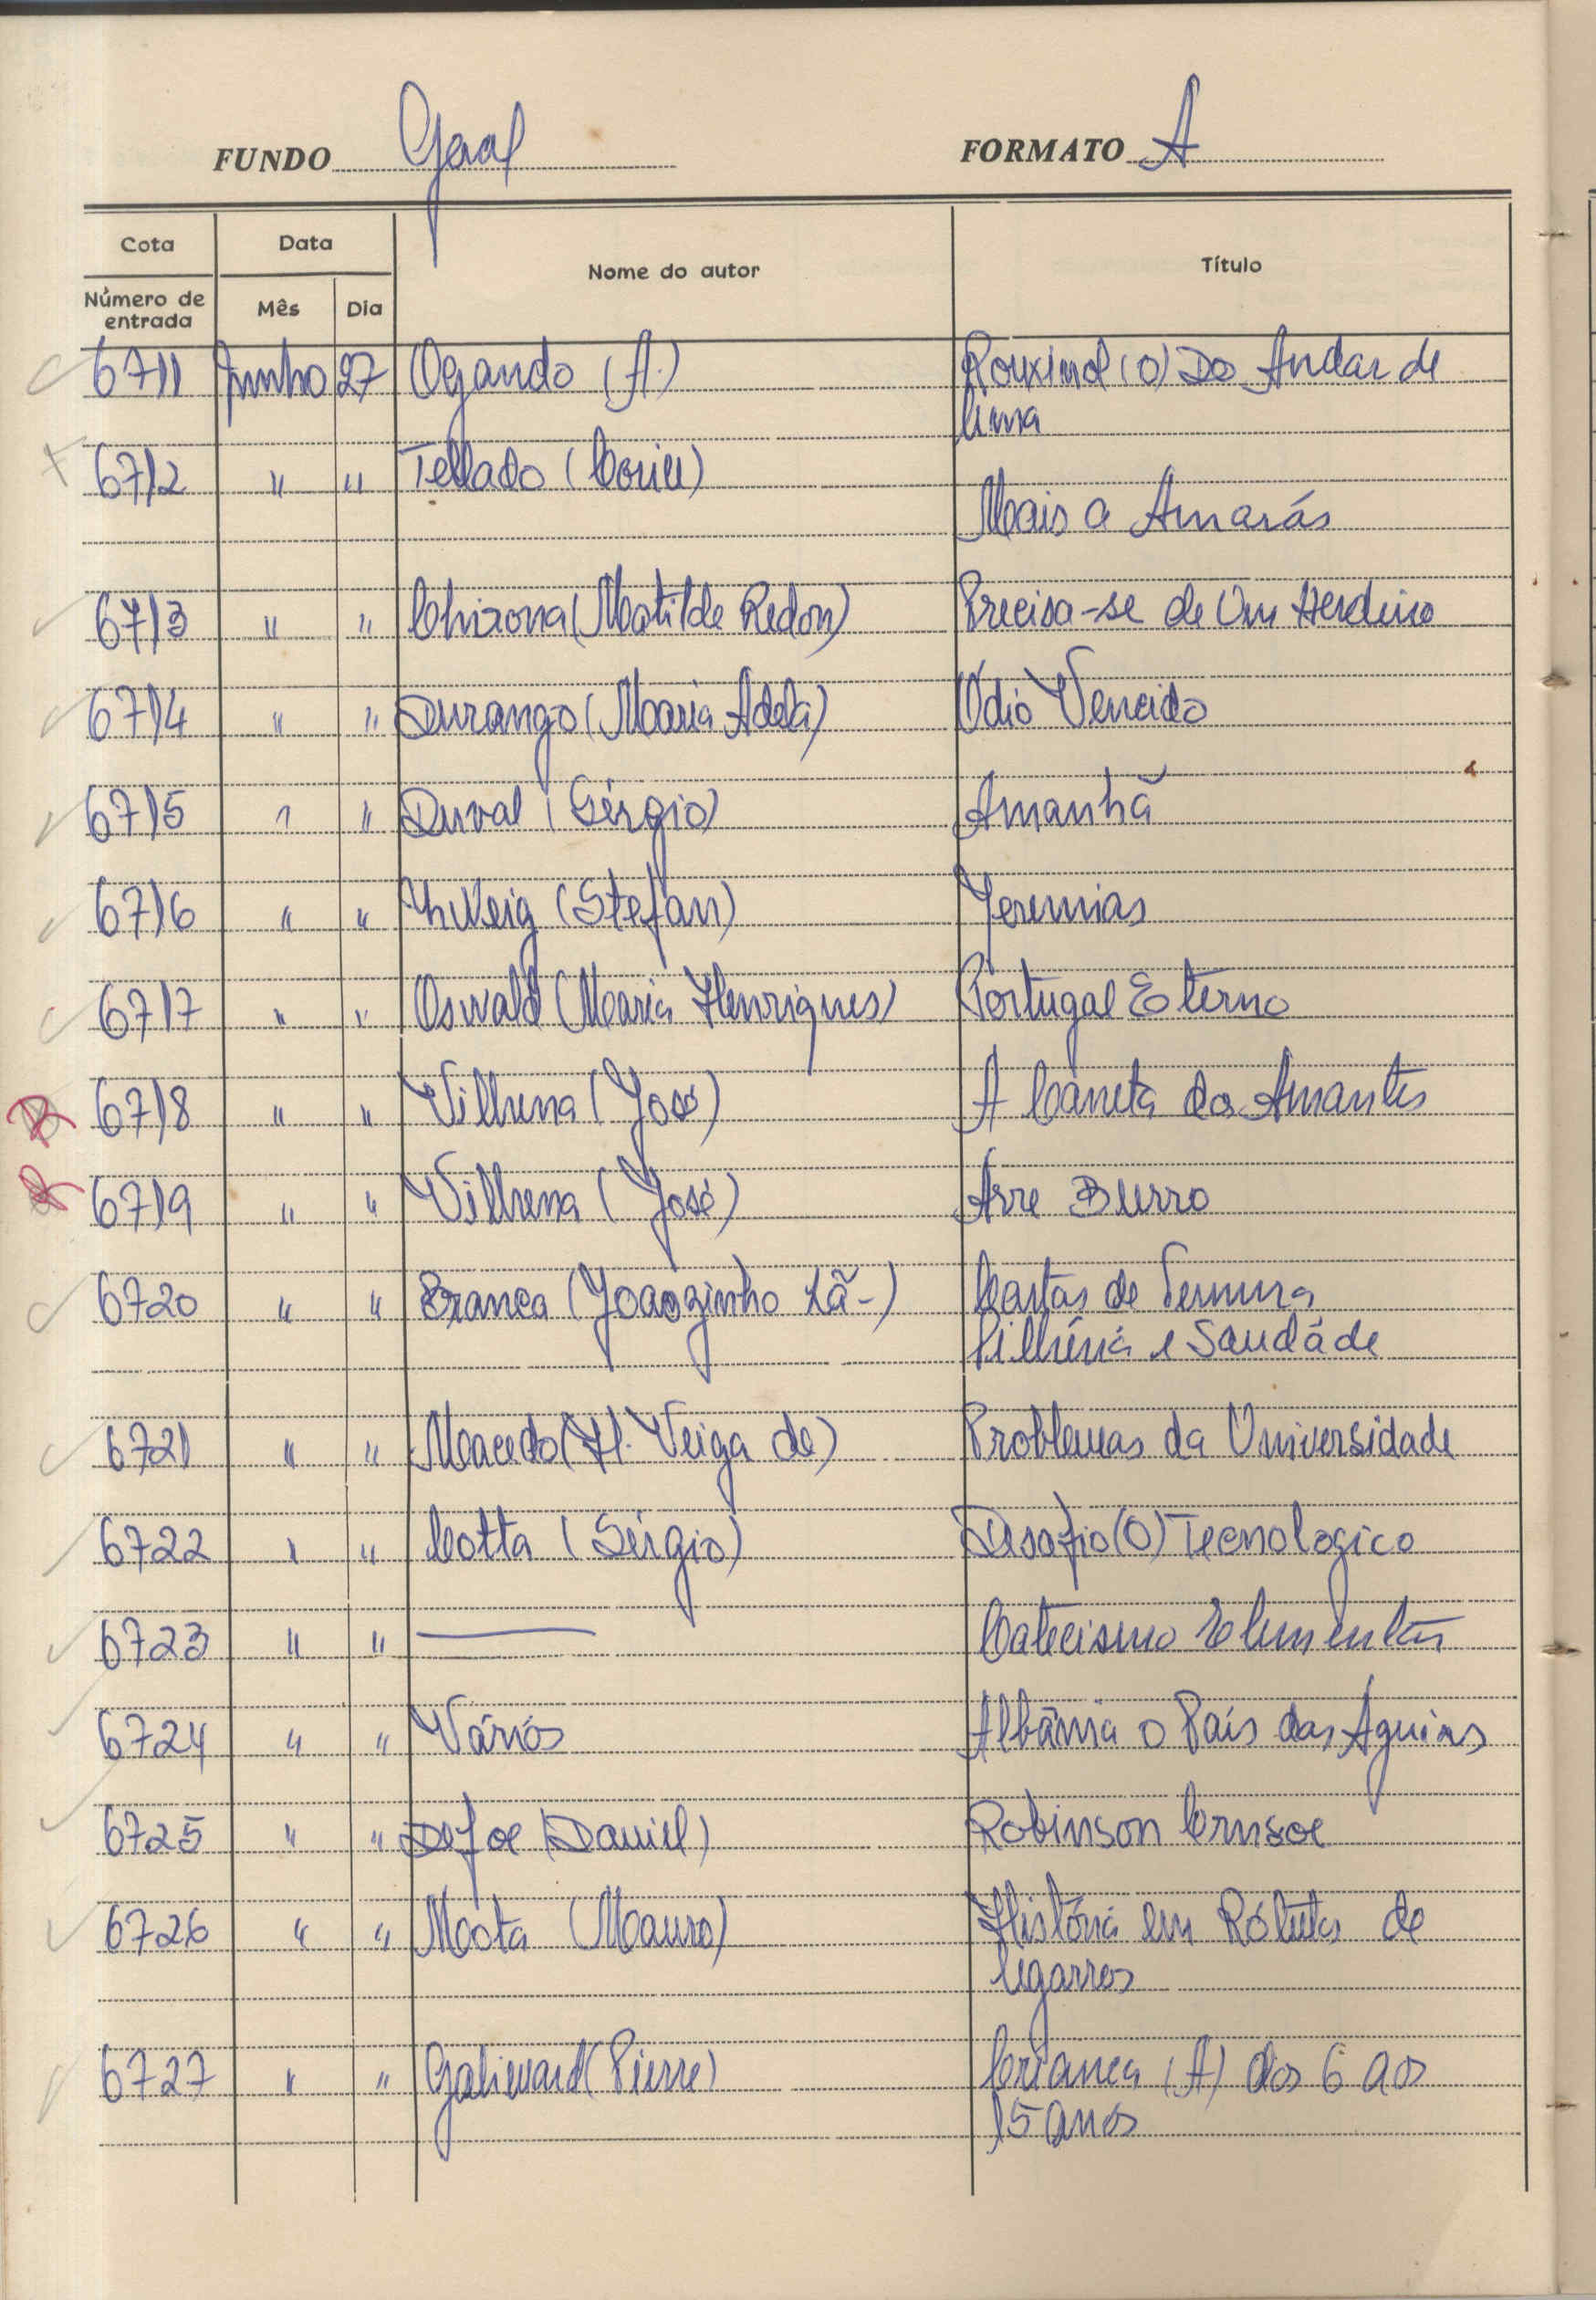 FUNDO Geral FORMATO A
Cota Data Nome do autor Título
Número de entrada Mês Dia
6711 Junho 27 Ogando (A.) Rouxinol (O) Do Andar de
Cima
6712 " " Tellado (Corin)
Mais a Amarás
6713 " " Chizona (Matilde Redon) Precisa-se de Um Herdeiro
6714 " " Durango (Maria Adela) Ódio Vencido
6715 " " Duval (Sérgio) Amanhã
6716 " " Zweig (Stefan) Jeremias
6717 " " Osvald (Maria Henriques) Portugal Eterno
R 6718 " " Vilhena (José) A Caneta dos Amantes
R 6719 " " Vilhena (José) Arre Burro
6720 " " Branca (Joãozinho Lã-) Cartas de Ternura
e Saudade
6721 " " Macedo (H. Veiga de) Problemas da Universidade
6722 " " Cotta (Sérgio) Desafio (O) Tecnologico
6723 " " Catecismo Elementar
6724 " " Vários Albânia o País das Águias
6725 " " Defoe (Daniel) Robinson Crusoe
6726 " " Mota (Mauro) História em Rótulos de
Cigarros
6727 " " (Pierre) Criança (A) dos 6 aos
15 anos